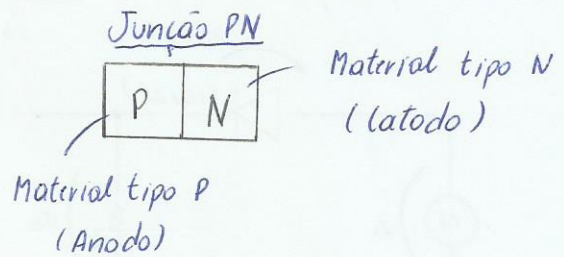 Junção PN
P N
Material tipo N
(Catodo)
Material tipo P
(Anodo)